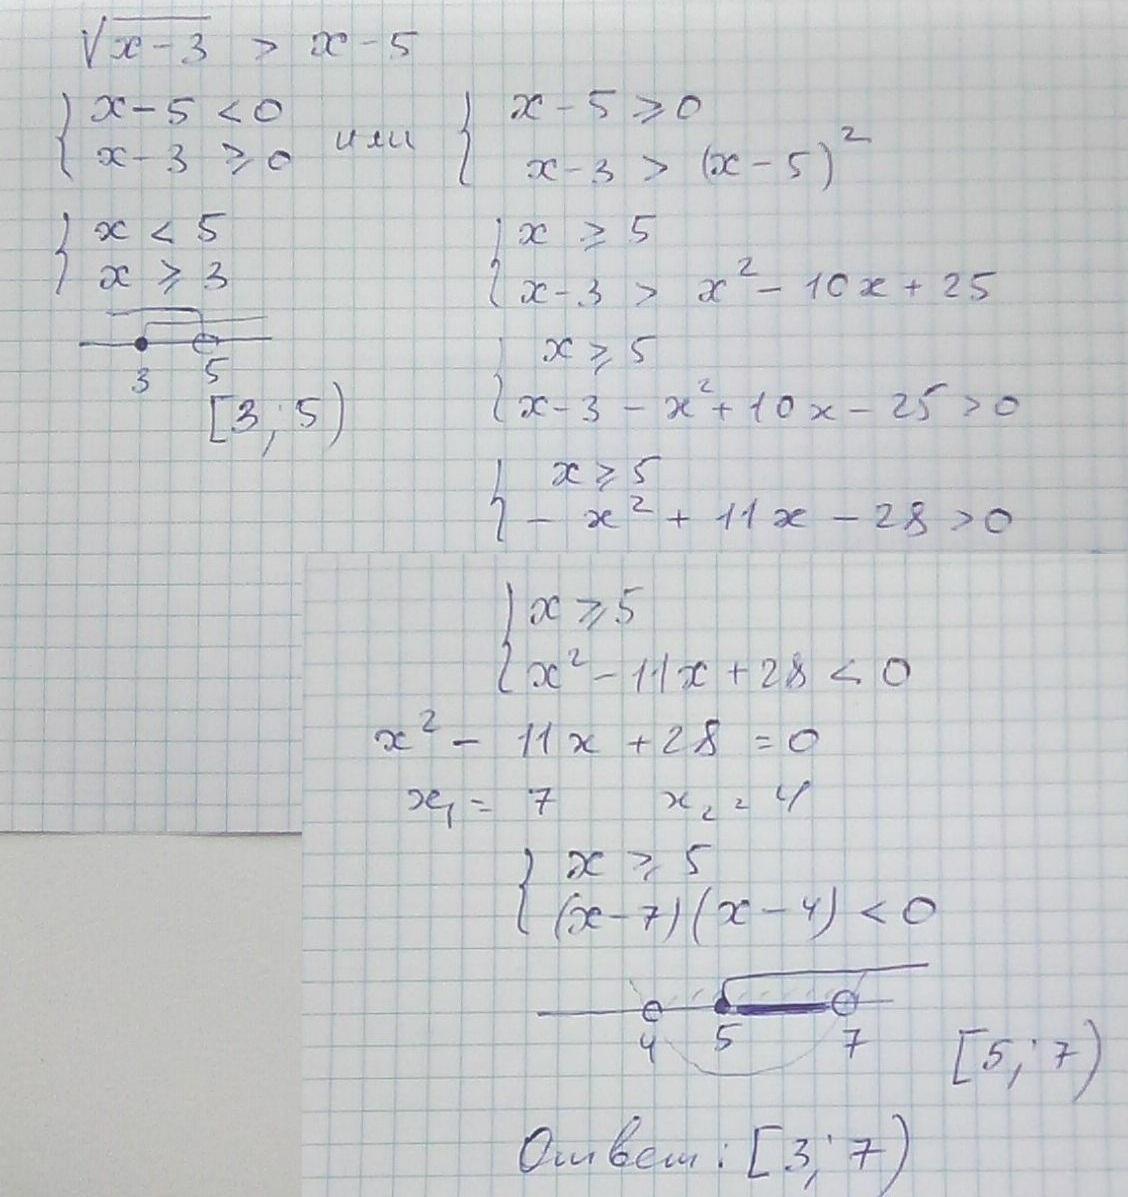 √x-3 > x-5
{ x-5 < 0
x-3 ≥ 0
или
{ x-5 ≥ 0
x-3 > (x-5)²
{ x < 5
x ≥ 3
3 5
[3; 5)
{ x ≥ 5
x-3 > x² - 10x + 25
{ x ≥ 5
x-3 - x² + 10x - 25 > 0
{ x ≥ 5
- x² + 11x - 28 > 0
{ x ≥ 5
x² - 11x + 28 < 0
x² - 11x + 28 = 0
x₁ = 7 x₂ = 4
{ x ≥ 5
(x-7)(x-4) < 0
4 5 7
[5; 7)
Ответ: [3; 7)